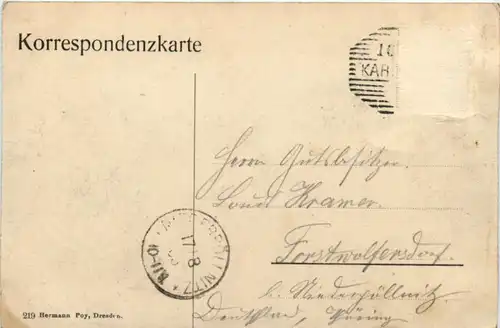 Korrespondenzkarte
10
KAR
Herrn Gutsbesitzer
Louis Kramer
Forstwolfersdorf
b. Niederpöllnitz
Deutschland, Thüring
NIEDERPÖLLNITZ
17 8
219 Hermann Poy, Dresden.